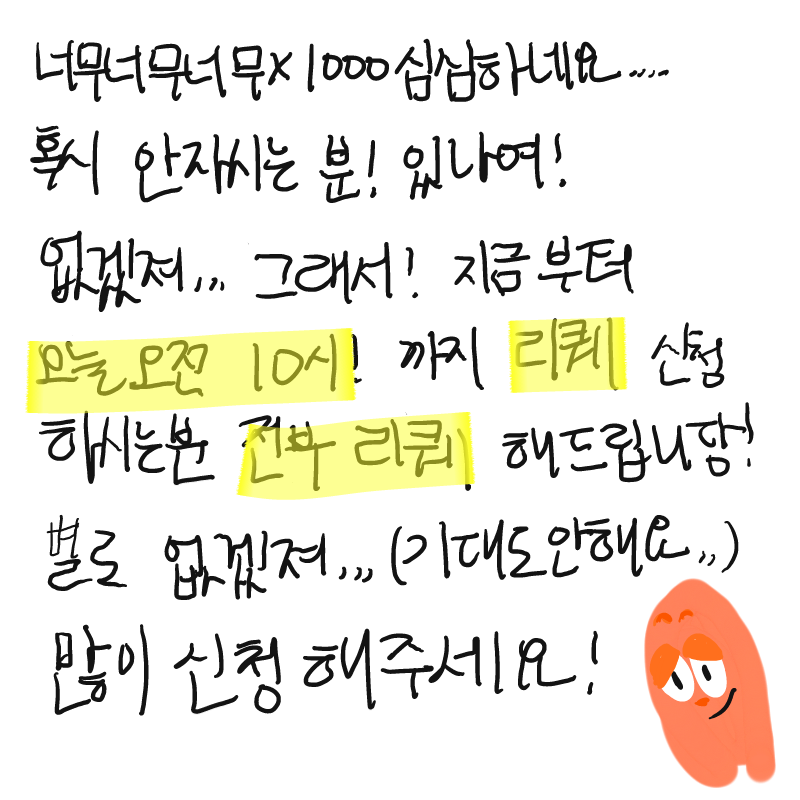 너무너무너무x1000심심하네요....
혹시 안자시는 분! 있나여!
없겠져,,, 그래서! 지금부터
오늘오전 10시! 까지 리퀘 신청
하시는분 전부 리퀘 해드립니담!
별로 없겠져,,,(기대도안해요,,,)
많이 신청 해주세요!